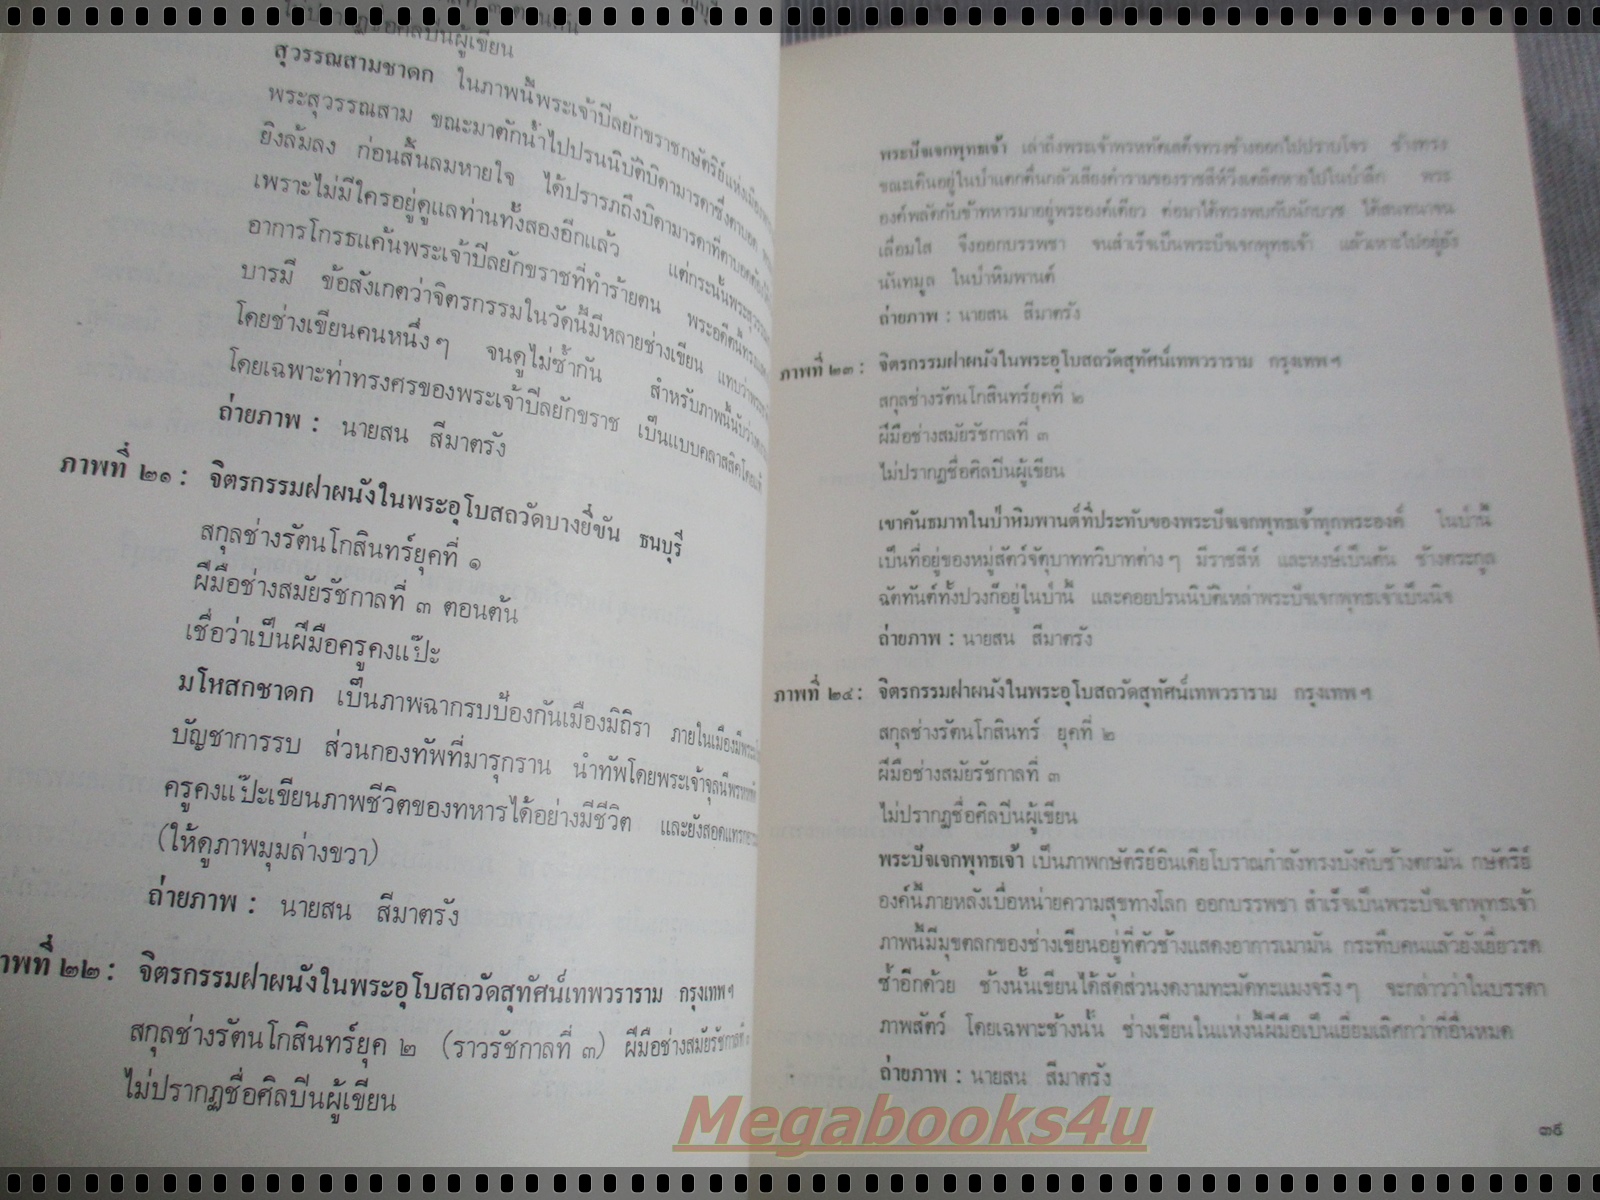 ไม่ปรากฏชื่อศิลปีนผู้เขียน
สุวรรณสามชาดก ในภาพนี้พระเจ้าปีลยักขราชกษัตริย์แห่งเมือง
พระสุวรรณสาม ขณะมาตักน้ำไปปรนนิบัติบิดามารดาซึ่งตาบอด
ยิงล้มลง ก่อนสิ้นลมหายใจ ได้ปรารภถึงบิดามารดาที่ตาบอด
เพราะไม่มีใครอยู่ดูแลท่านทั้งสองอีกแล้ว แต่กระนั้นพระ
อาการโกรธแค้นพระเจ้าปีลยักขราชที่ทำร้ายตน พระอดีตนี้ทรง
บารมี ข้อสังเกตว่าจิตรกรรมในวัดนี้มีหลายช่างเขียน แทบว่า
โดยช่างเขียนคนหนึ่งๆ จนดูไม่ซ้ำกัน สำหรับภาพนี้นับว่า
โดยเฉพาะท่าทรงศรของพระเจ้าปีลยักขราช เป็นแบบคลาสสิคโดยแท้
ถ่ายภาพ : นายสน สีมาตรัง
ภาพที่ ๒๑ : จิตรกรรมฝาผนังในพระอุโบสถวัดบางยี่ขัน ธนบุรี
สกุลช่างรัตนโกสินทร์ยุคที่ ๑
ฝีมือช่างสมัยรัชกาลที่ ๓ ตอนต้น
เชื่อว่าเป็นฝีมือครูคงแป๊ะ
มโหสกชาดก เป็นภาพฉากรบป้องกันเมืองมิถิรา ภายในเมืองมี
บัญชาการรบ ส่วนกองทัพที่มารุกราน นำทัพโดยพระเจ้าจุลนี
ครูคงแป๊ะเขียนภาพชีวิตของทหารได้อย่างมีชีวิต และยังสอดแทรก
(ให้ดูภาพมุมล่างขวา)
ถ่ายภาพ : นายสน สีมาตรัง
าพที่ ๒๒ : จิตรกรรมฝาผนังในพระอุโบสถวัดสุทัศน์เทพวราราม กรุงเทพฯ
สกุลช่างรัตนโกสินทร์ยุค ๒ (ราวรัชกาลที่ ๓) ฝีมือช่างสมัยรัชกาลที่ ๓
ไม่ปรากฏชื่อศิลปีนผู้เขียน
พระปัจเจกพุทธเจ้า เล่าถึงพระเจ้าพรหทัตเสด็จทรงช้างออกไปปราบโจร ช้างทรง
ขณะเดินอยู่ในป่าแตกตื่นกลัวเสียงคำรามของราชสีห์วิ่งเตลิดหายไปในป่าลึก พระ
องค์พลัดกับข้าทหารมาอยู่พระองค์เดียว ต่อมาได้ทรงพบกับนักบวช ได้สนทนาจน
เลื่อมใส จึงออกบรรพชา จนสำเร็จเป็นพระปัจเจกพุทธเจ้า แล้วเหาะไปอยู่ยัง
นันทมูล ในป่าหิมพานต์
ถ่ายภาพ : นายสน สีมาตรัง
ภาพที่ ๒๓ : จิตรกรรมฝาผนังในพระอุโบสถวัดสุทัศน์เทพวราราม กรุงเทพฯ
สกุลช่างรัตนโกสินทร์ยุคที่ ๒
ฝีมือช่างสมัยรัชกาลที่ ๓
ไม่ปรากฏชื่อศิลปีนผู้เขียน
เขาคันธมาทในป่าหิมพานต์ที่ประทับของพระปัจเจกพุทธเจ้าทุกพระองค์ ในป่านี้
เป็นที่อยู่ของหมู่สัตว์จัตุบาททวิบาทต่างๆ มีราชสีห์ และหงษ์เป็นต้น ช้างตระกูล
ฉัตทันต์ทั้งปวงก็อยู่ในป่านี้ และคอยปรนนิบัติเหล่าพระปัจเจกพุทธเจ้าเป็นนิจ
ถ่ายภาพ : นายสน สีมาตรัง
ภาพที่ ๒๔ : จิตรกรรมฝาผนังในพระอุโบสถวัดสุทัศน์เทพวราราม กรุงเทพฯ
สกุลช่างรัตนโกสินทร์ ยุคที่ ๒
ฝีมือช่างสมัยรัชกาลที่ ๓
ไม่ปรากฏชื่อศิลปีนผู้เขียน
พระปัจเจกพุทธเจ้า เป็นภาพกษัตริย์อินเดียโบราณกำลังทรงบังคับช้างตกมัน กษัตริย์
องค์นี้ภายหลังเบื่อหน่ายความสุขทางโลก ออกบรรพชา สำเร็จเป็นพระปัจเจกพุทธเจ้า
ภาพนี้มีมุขตลกของช่างเขียนอยู่ที่ตัวช้างแสดงอาการเมามัน กระทืบคนแล้วยังเยี่ยวรด
ซ้ำอีกด้วย ช้างนั้นเขียนได้สัดส่วนงดงามทะมัดทะแมงจริงๆ จะกล่าวว่าในบรรดา
ภาพสัตว์ โดยเฉพาะช้างนั้น ช่างเขียนในแห่งนี้ฝีมือเป็นเยี่ยมเลิศกว่าที่อื่นหมด
ถ่ายภาพ : นายสน สีมาตรัง
๓๕
Megabooks4u